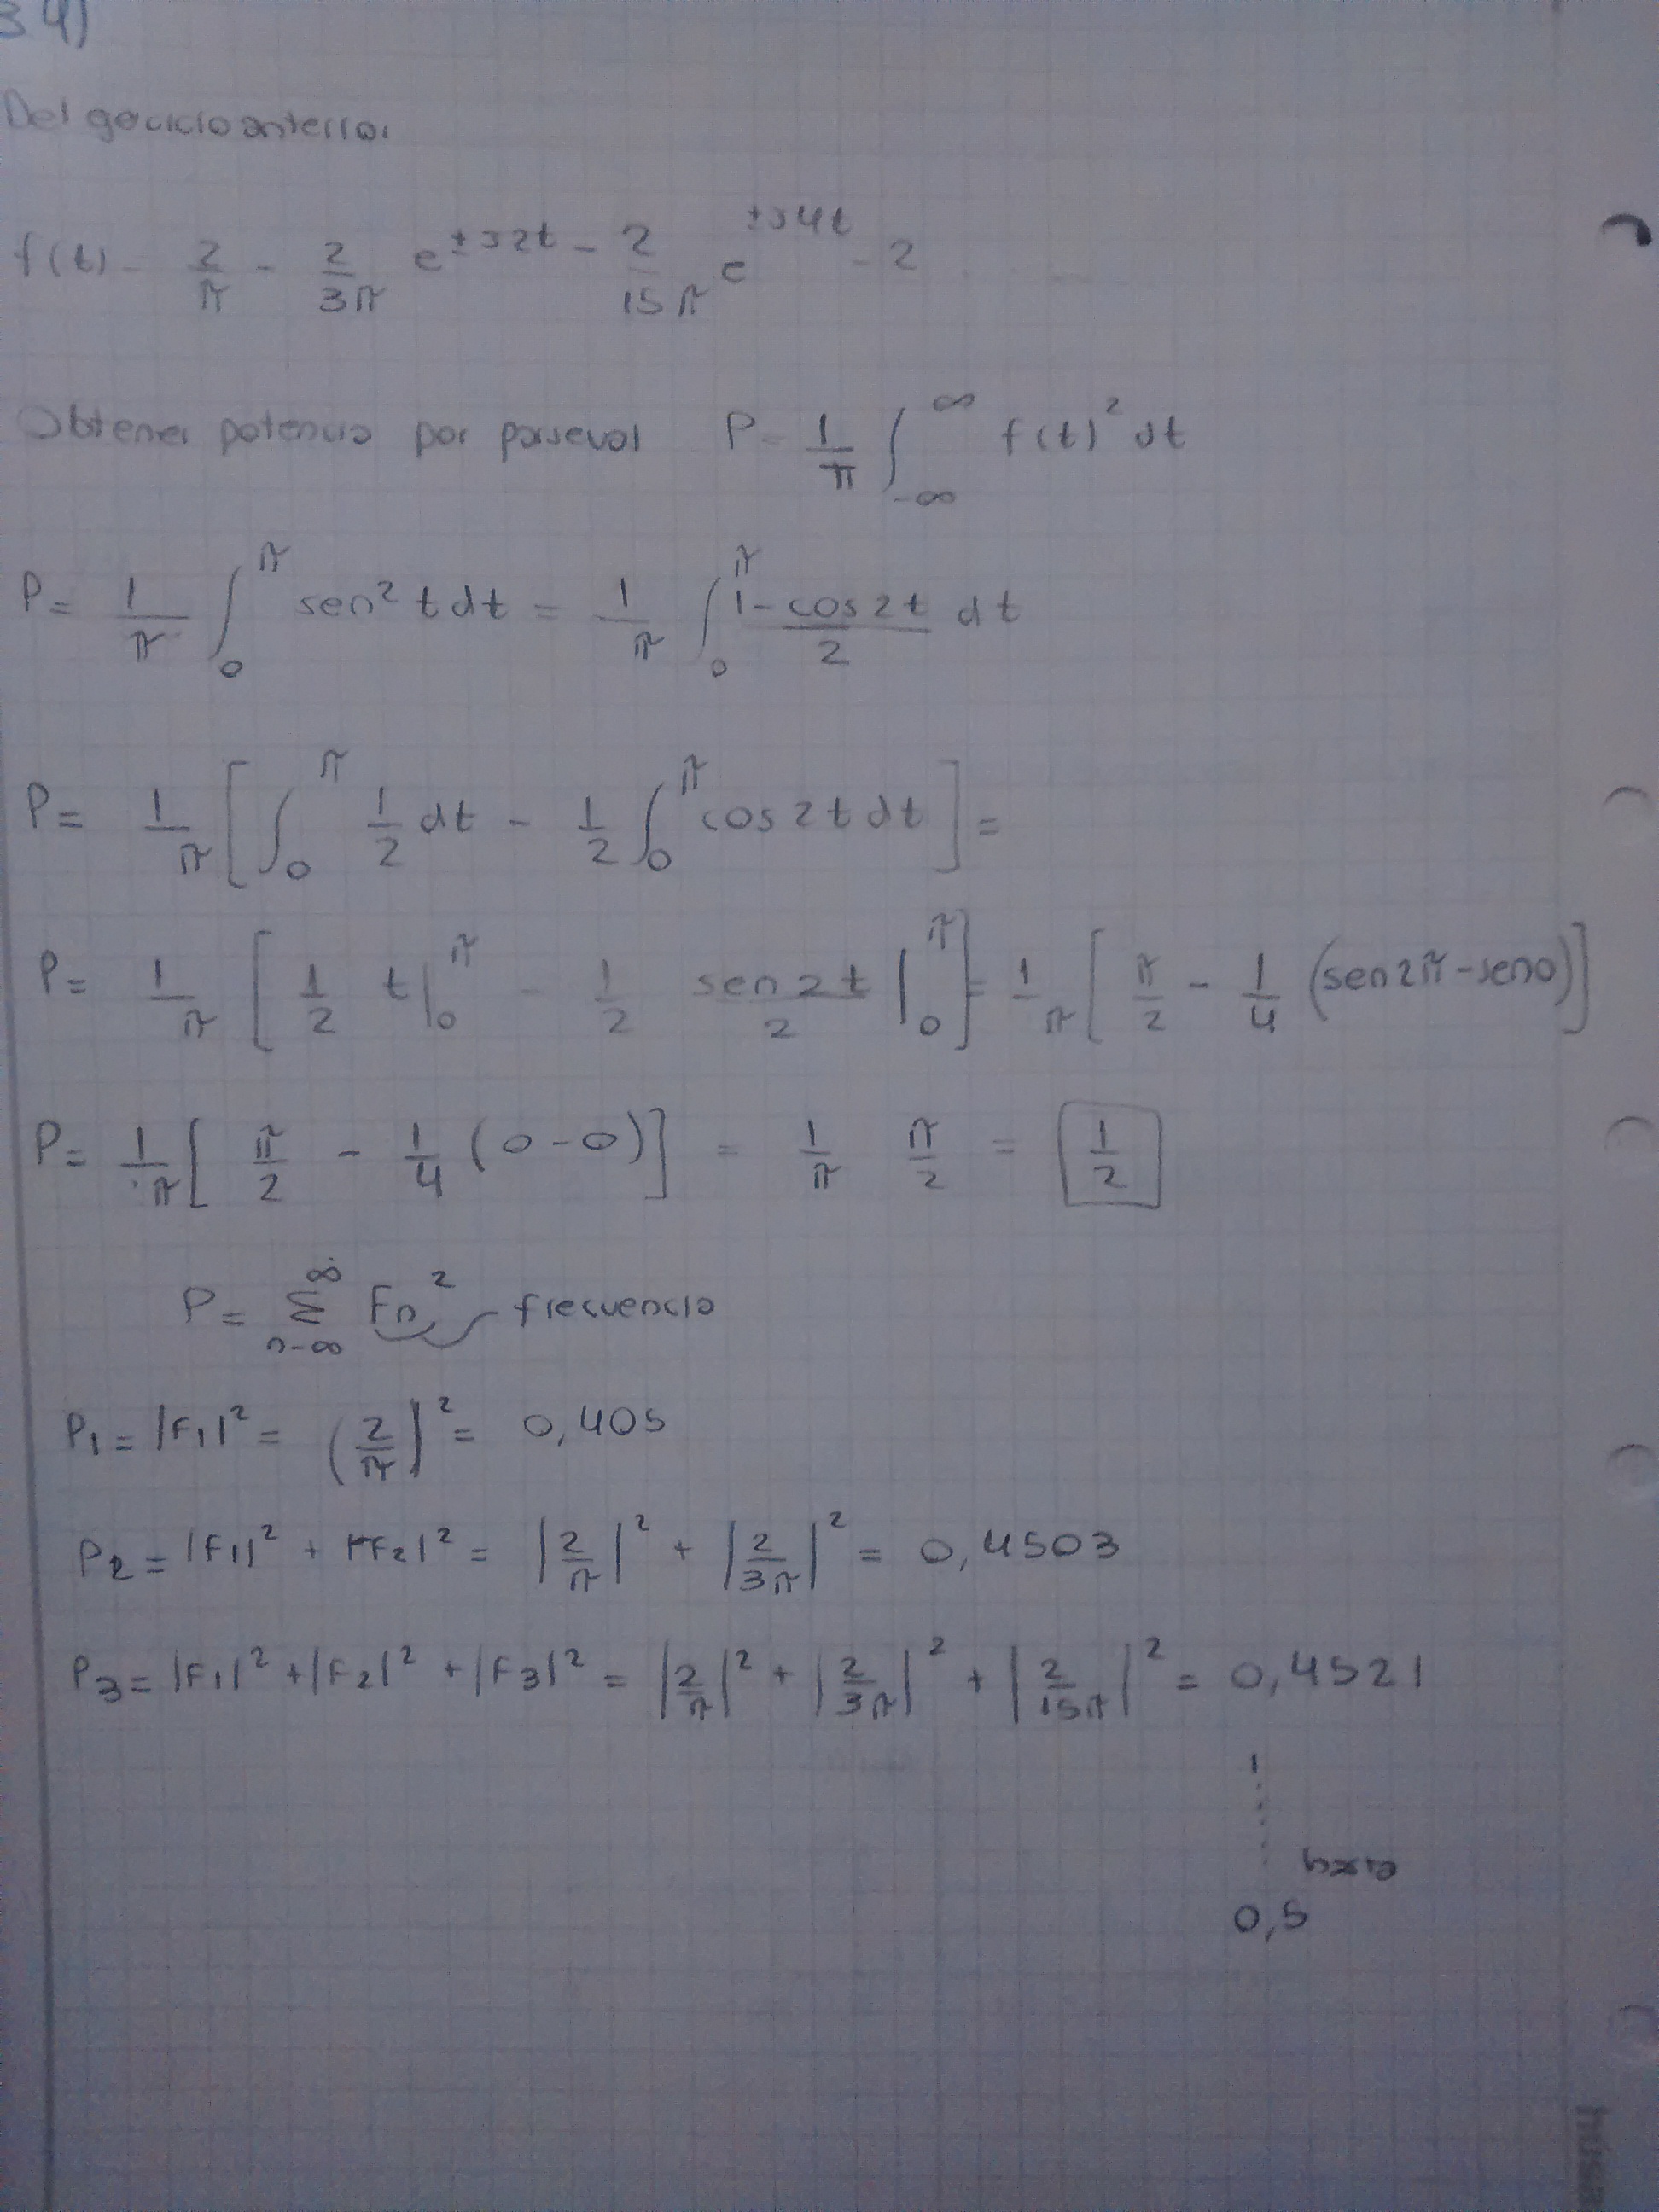 34)
Del ejercicio anterior
f(t) = 2/π - 2/3π e^±j2t - 2/15π e^±j4t - 2 ...
Obtener potencia por parseval P = 1/π ∫_-∞^∞ f(t)² dt
P = 1/π ∫_0^π sen² t dt = 1/π ∫_0^π (1-cos2t)/2 dt
P = 1/π [∫_0^π 1/2 dt - 1/2 ∫_0^π cos2t dt] =
P = 1/π [1/2 t|_0^π - 1/2 sen2t/2 |_0^π] = 1/π [π/2 - 1/4 (sen2π-sen0)]
P = 1/π [π/2 - 1/4 (0-0)] = 1/π π/2 = 1/2
P = Σ_n-∞^∞ Fn² frecuencia
P1 = |F1|² = (2/π|² = 0,405
P2 = |F1|² + |F2|² = |2/π|² + |2/3π|² = 0,4503
P3 = |F1|² + |F2|² + |F3|² = |2/π|² + |2/3π|² + |2/15π|² = 0,4521
hasta
0,5